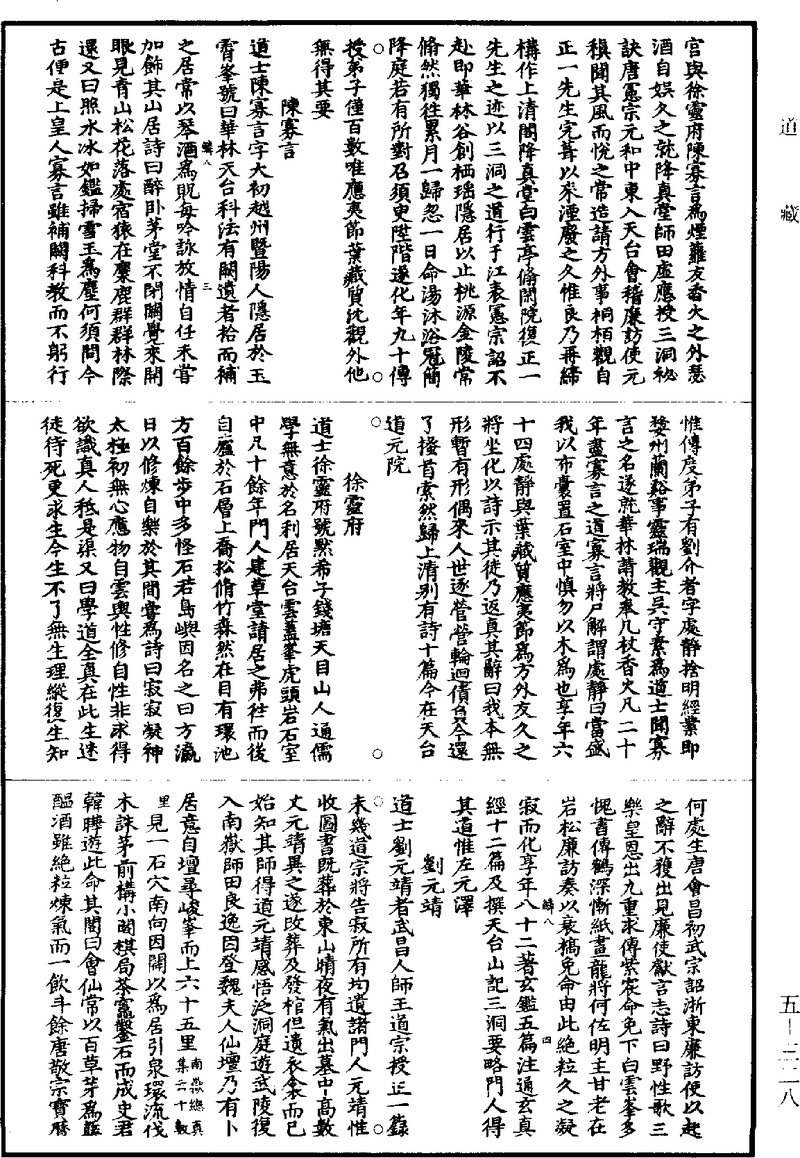 道藏
宫與徐靈府陳寡言爲煙蘿友香火之外琴
酒自娱久之就降真堂師田虚應授三洞祕
訣唐憲宗元和中東入天台會稽廉訪使元
稹聞其風而悅之常造請方外事桐栢觀自
正一先生完葺以來湮廢之久惟良乃再締
構作上清閣降真堂白雲亭翛閑院復正一
先生之迹以三洞之道行于江表憲宗詔不
赴即華林谷創栖瑶隱居以止桃源金陵常
翛然獨往累月一歸忽一日命湯沐浴冠簡
降庭若有所對召須臾陞階遂化年九十傳
授弟子僅百數唯應夷節葉藏質沈觀外他
無得其要
陳寡言
道士陳寡言字大初越州暨陽人隱居於玉
霄峯號曰華林天台科法有闕遺者拾而補
之居常以琴酒爲貺每吟詠放情自任未嘗
加飾其山居詩曰醉卧茅堂不閉關覺來開
眼見青山松花落處宿猿在麋鹿群群林際
還又曰照水冰如鑑掃雪玉爲塵何須問今
古便是上皇人寡言雖補闕科教而不躬行
惟傳度弟子有劉介者字處静捨明經業即
婺州蘭谿事靈瑞觀主吳守素爲道士聞寡
言之名遂就華林請教奉几杖香火凡二十
年盡寡言之道寡言將尸解謂處静曰當盛
我以布囊置石室中慎勿以木爲也享年六
十四處静與葉藏質應夷節爲方外友久之
將坐化以詩示其徒乃返真其辭曰我本無
形暫有形偶來人世逐營營輪迴債負今還
了搔首索然歸上清别有詩十篇今在天台
道元院
徐靈府
道士徐靈府號默希子錢塘天目山人通儒
學無意於名利居天台雲蓋峯虎頭岩石室
中凡十餘年門人建草堂請居之弗往而後
自廬於石層上喬松脩竹森然在目有環池
方百餘步中多怪石若島嶼因名之曰方瀛
日以修煉自樂於其間嘗爲詩曰寂寂凝神
太極初無心應物自雲輿性修自性非求得
欲識真人秖是渠又曰學道全真在此生迷
徒待死更求生今生不了無生理縱復生知
何處生唐會昌初武宗詔浙東廉訪使以起
之辭不獲出見廉使獻言志詩曰野性歌三
樂皇恩出九重求傳紫宸命免下白雲峯多
愧書傳鶴深慚紙畫龍將何佐明主甘老在
岩松廉訪奏以衰槁免命由此絶粒久之凝
寂而化享年八十二著玄鑑五篇注通玄真
經十二篇及撰天台山記三洞要略門人得
其道惟左元澤
劉元靖
道士劉元靖者武昌人師王道宗授正一籙
未幾道宗將告寂所有均遺諸門人元靖惟
收圖書既葬於東山晴夜有氣出墓中高數
丈元靖異之遂改葬及發棺但遺衣衾而已
始知其師得道元靖感悟泛洞庭遊武陵復
入南嶽師田良逸因登魏夫人仙壇乃有卜
居意自壇尋峻峯而上六十五里南嶽總真集云十數
里見一石穴南向因闢以爲居引泉環流伐
木誅茅前構小閣棋局茶竈鑿石而成史君
韓曄遊此命其閣曰會仙常以百草芽爲虀
醖酒雖絶粒煉氣而一飲斗餘唐敬宗寶曆
五—三二八